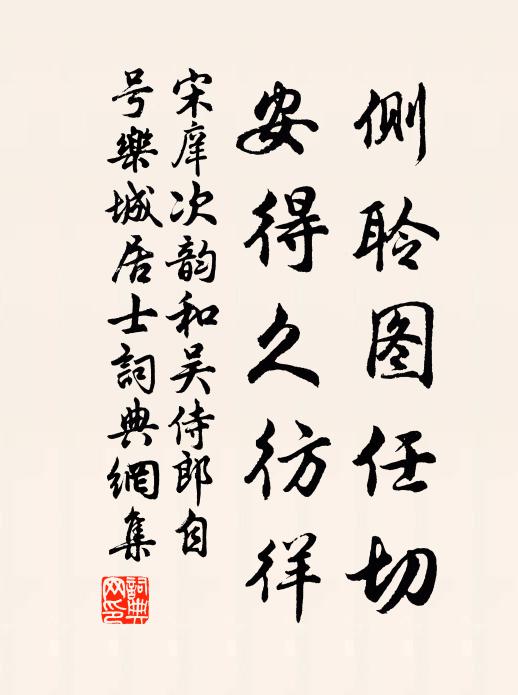 側聆图任切
安得久彷徉
宋庠次韵和吴侍郎自
号樂城居士詞典網集
詞典網印